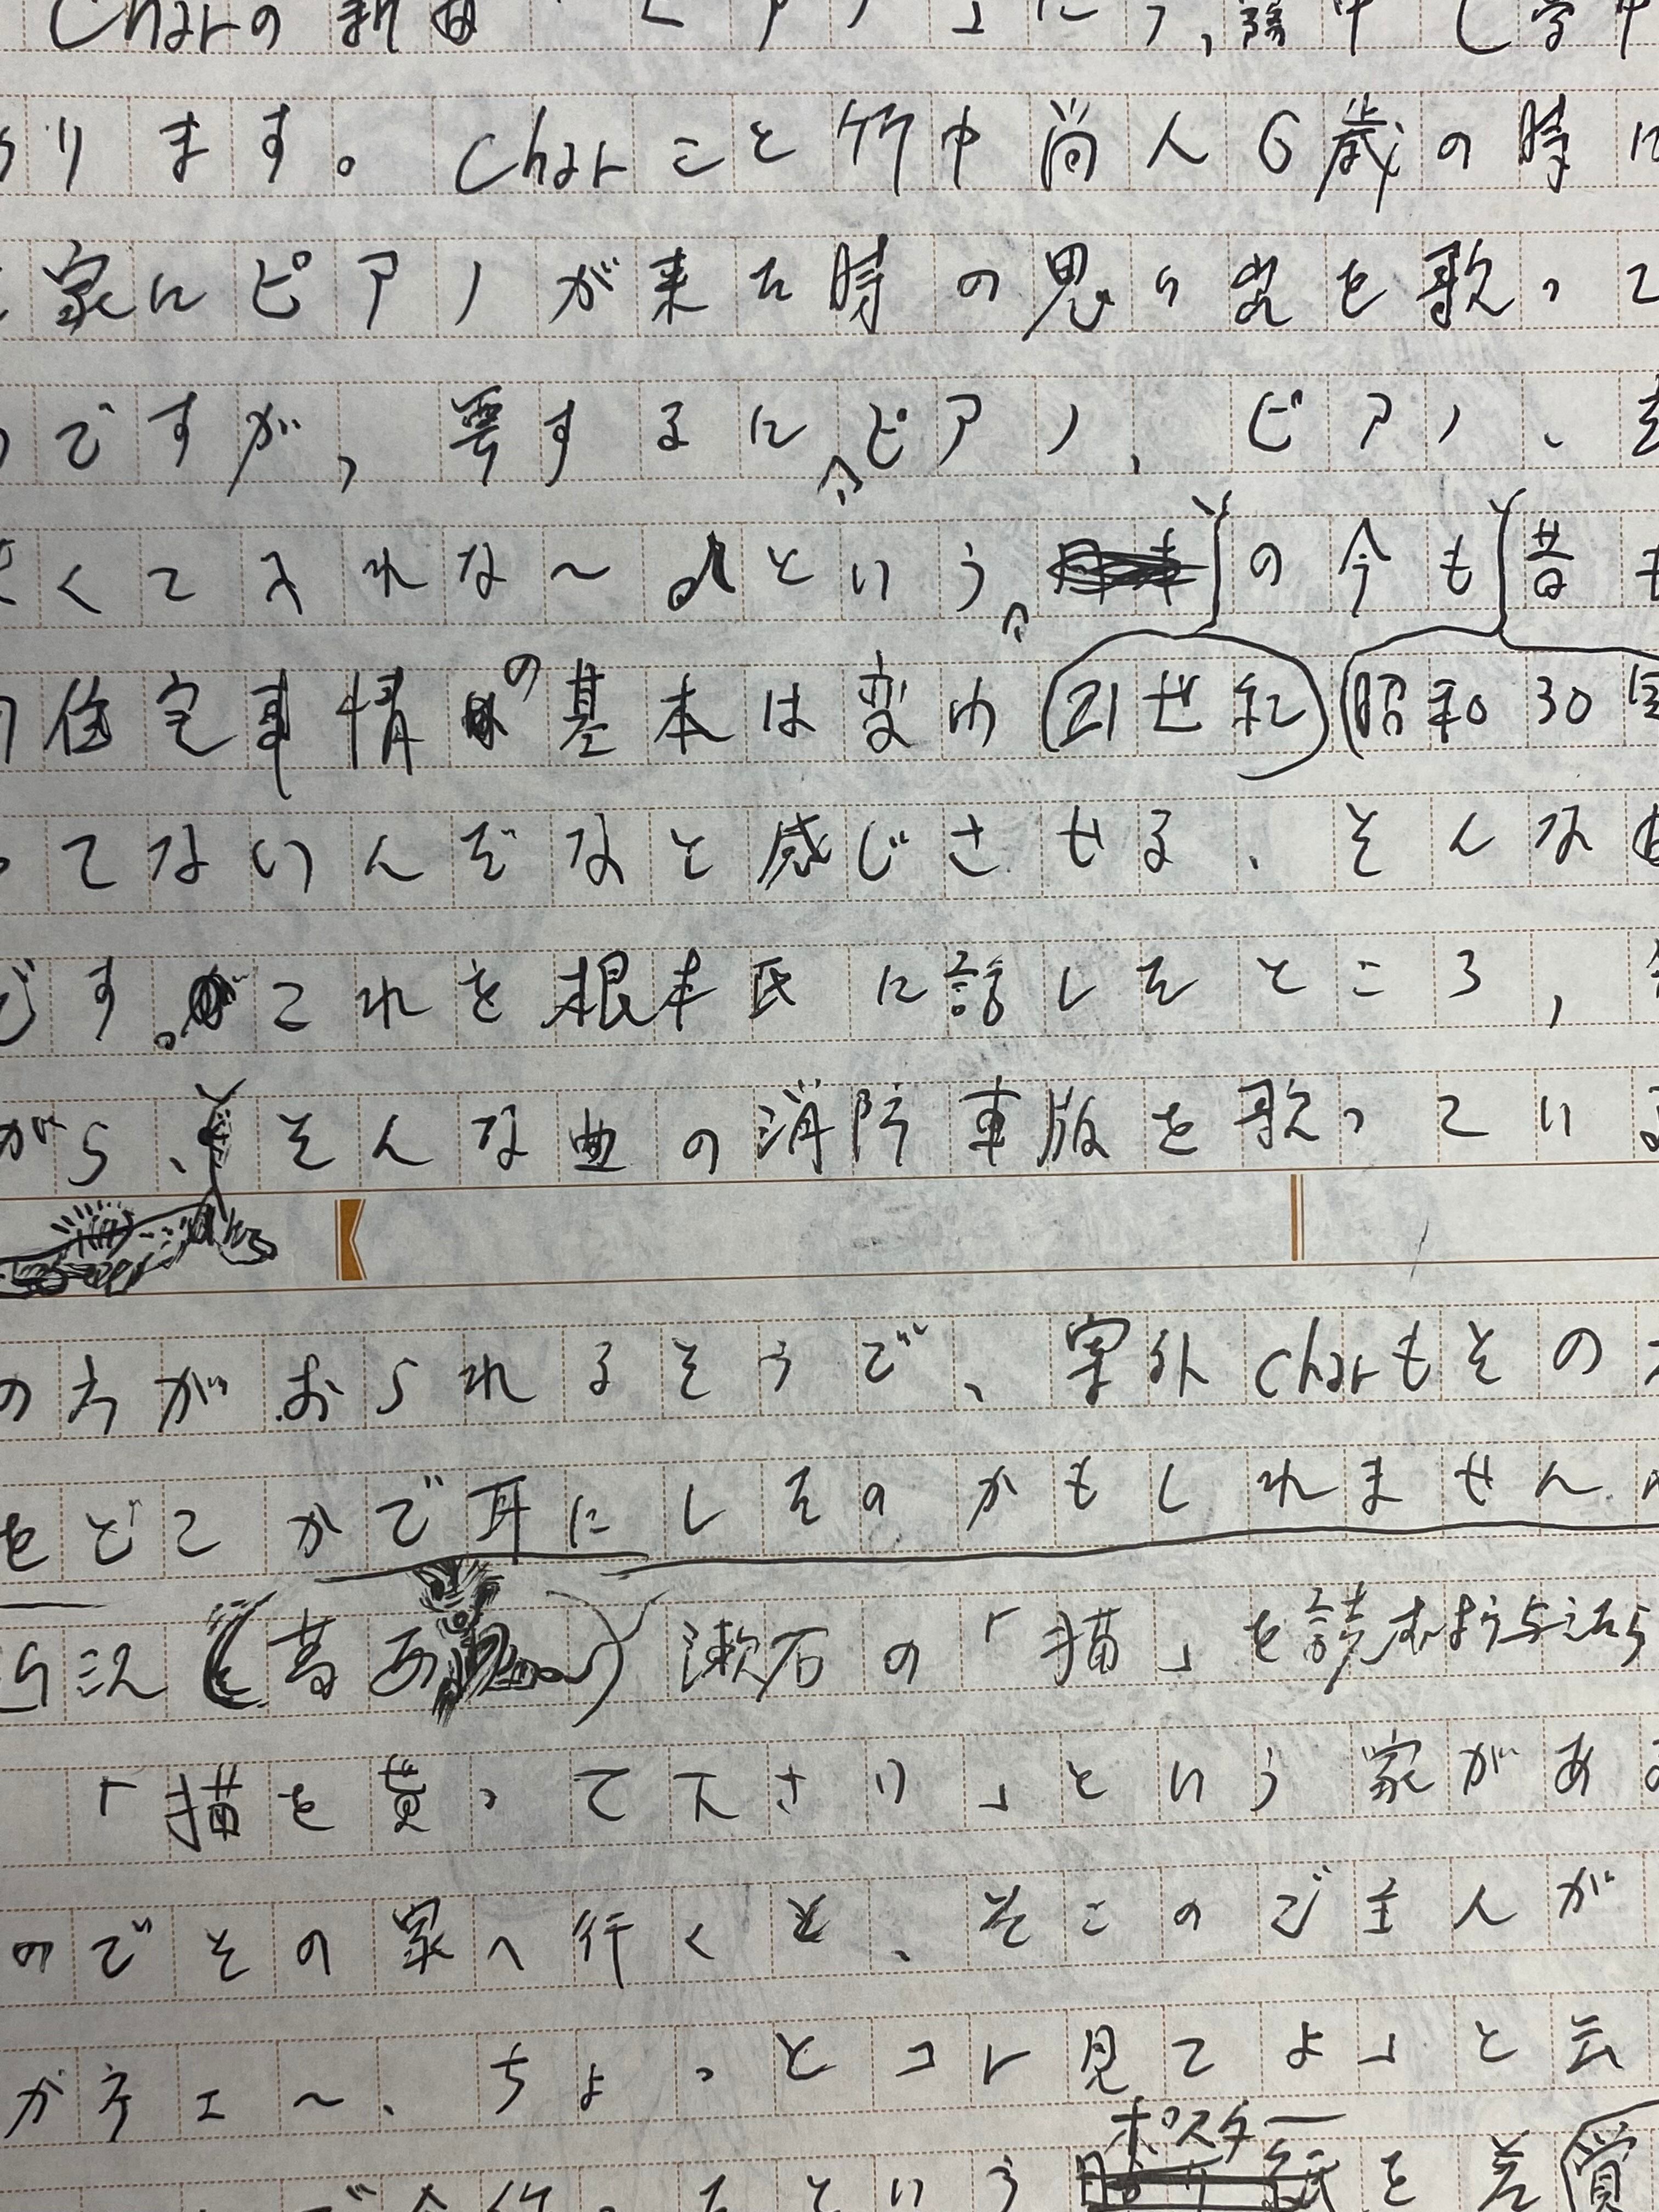 Charの新曲「ピアノ」
ります。Charこと竹中尚人6歳の時に
家にピアノが来た時の思い出を歌って
ですが、要するにピアノ、ピアノ、
くて入れな〜♪という の今も昔も
住宅事情の基本は変わ 21世紀 昭和30
ってないんだなと感じさせる、そんな曲
です。これを根本氏に話したところ、
がら、そんな曲の消防車版を歌っている
の方がおられるそうで、案外Charもその
をどこかで耳にしたのかもしれません
近況(葛西 )漱石の「猫」を読
「猫を貰って下さい」という家がある
のでその家へ行くと、そこのご主人が
がネェ〜、ちょっとコレ見てよ」と云
ポスター
という 紙を差